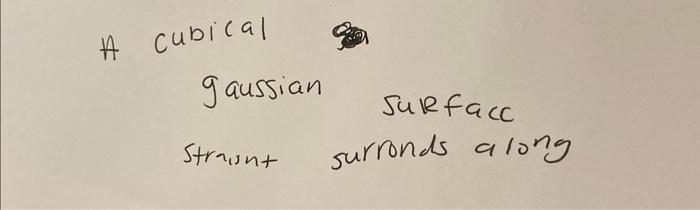 A cubical
gaussian surfacc
straisnt surronds along